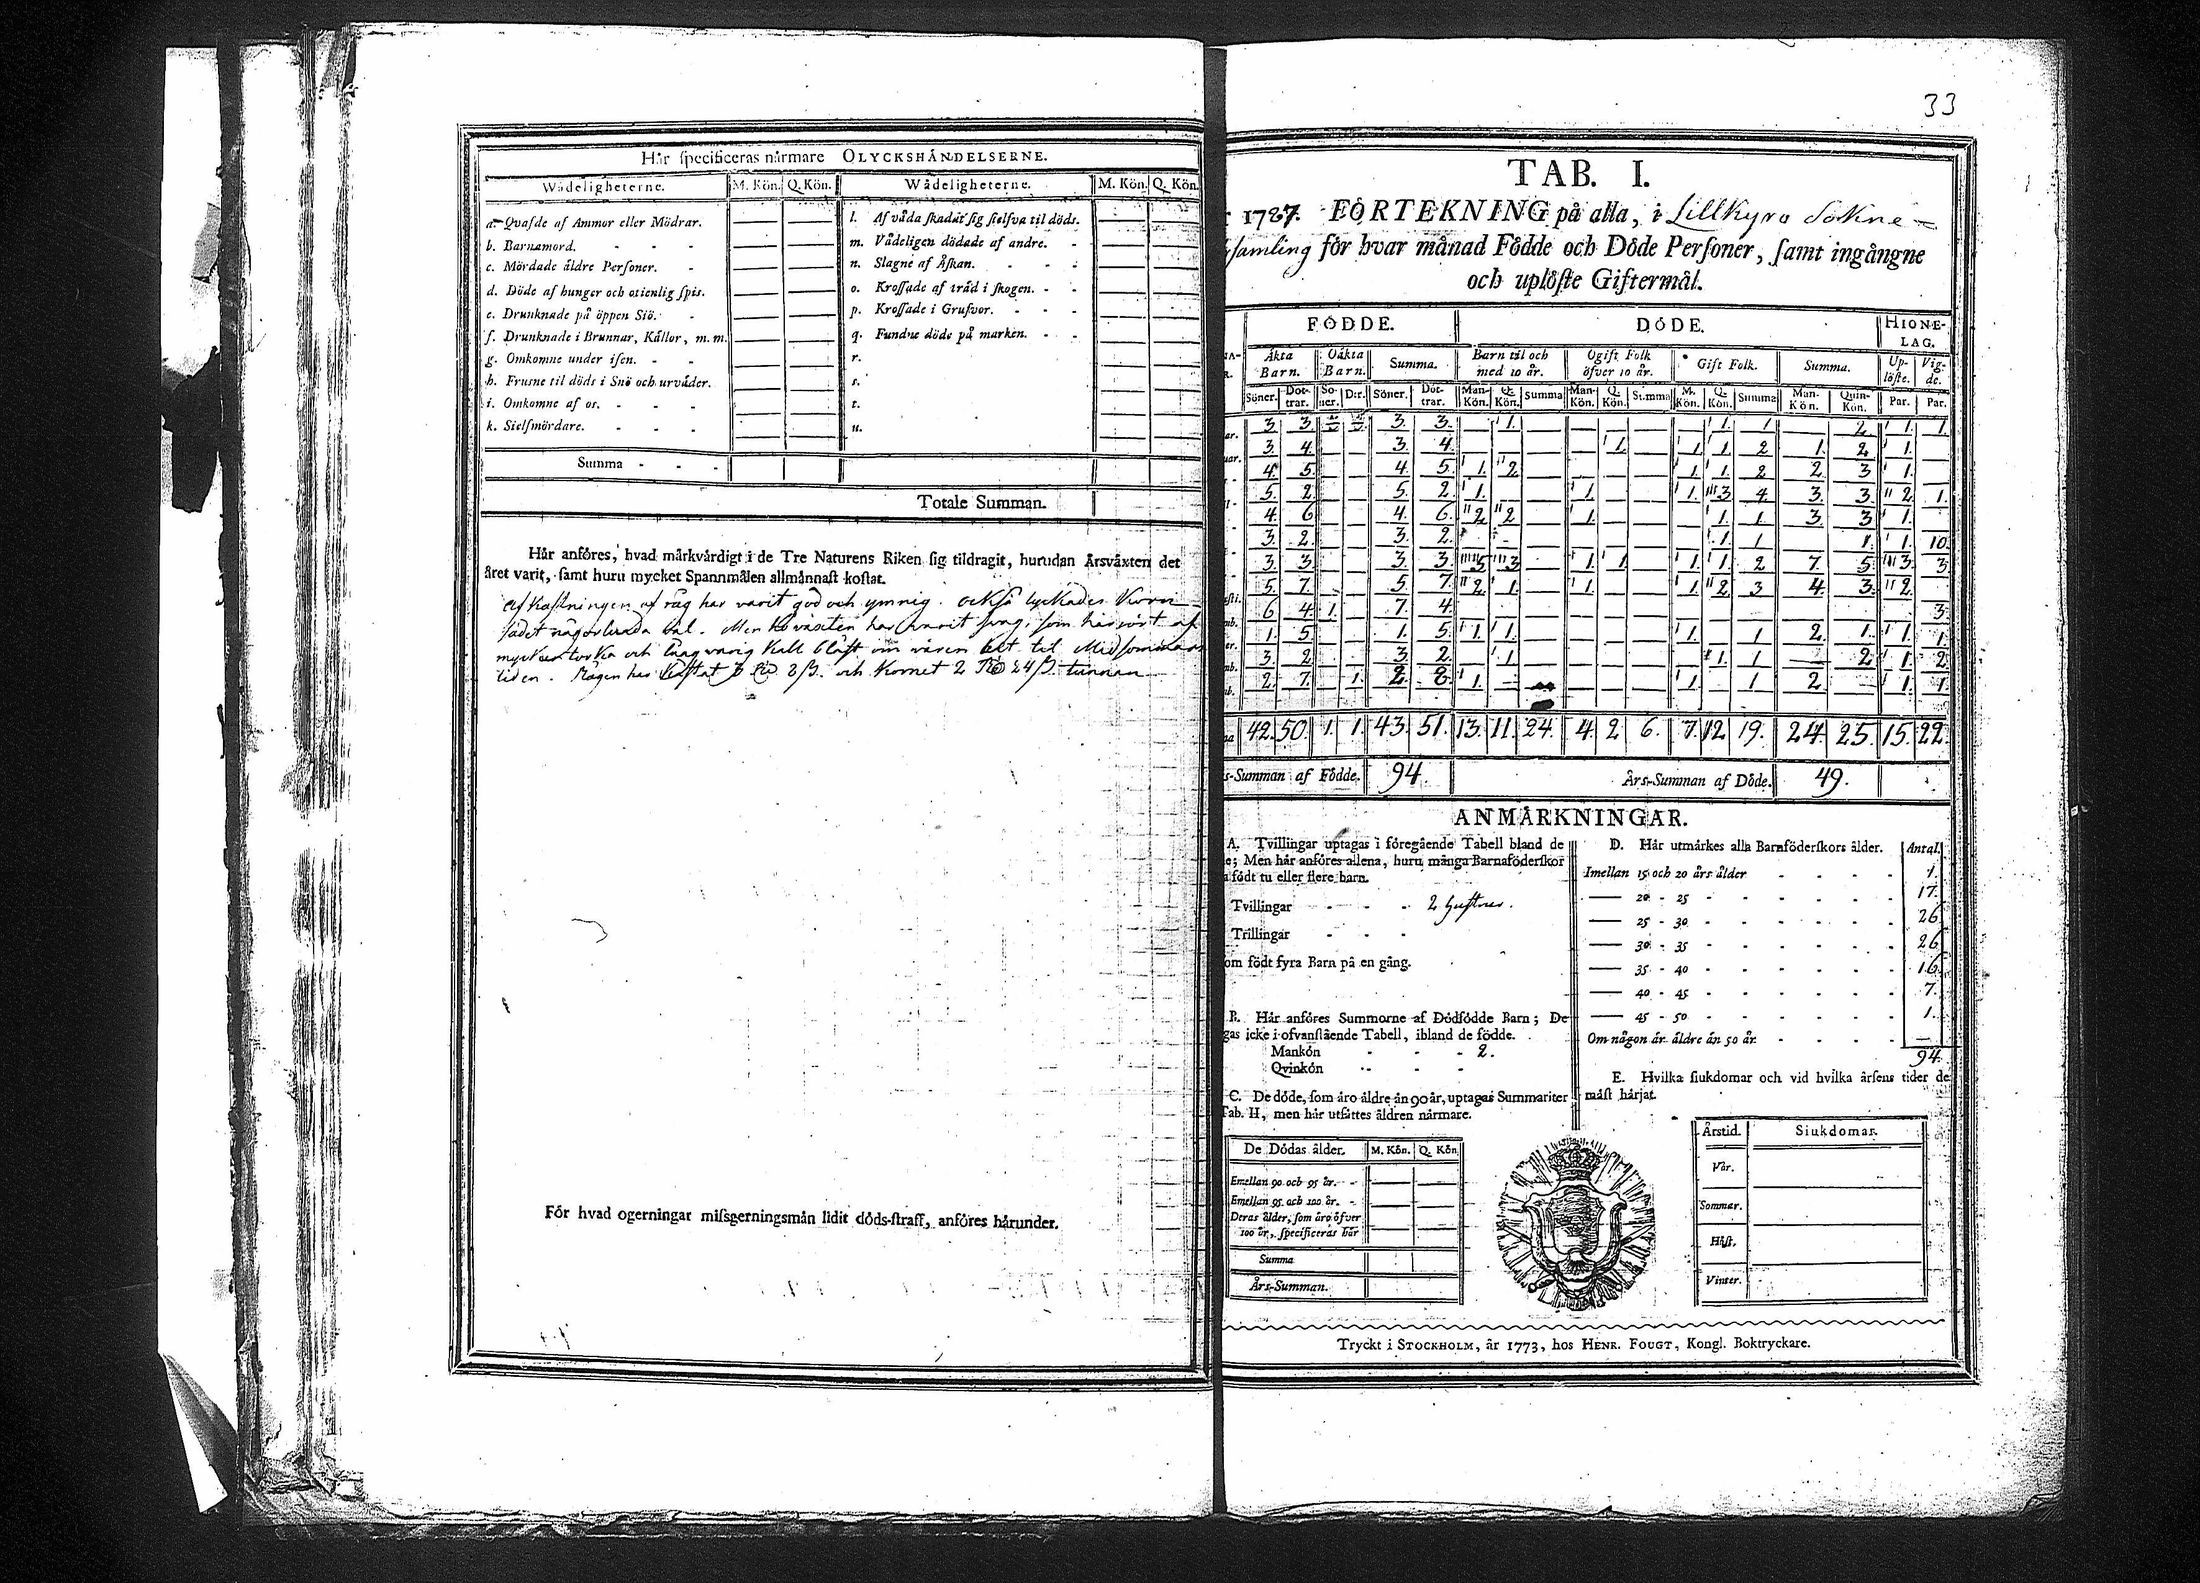 33
Hår specificeras nårmare OLYCKSHÅNDELSERNE.
Wådeligheterne. M. Kön. Q. Kön. Wådeligheterne. M. Kön. Q. Kön.
a. Qvafde af Ammor eller Mödrar.
b. Barnamord. - - -
c. Mördade åldre Personer. -
d. Döde af hunger och otienlig spis.
e. Drunknade på öppen Siö. -
f. Drunknade i Brunnar, Kållor, m. m.
g. Omkomne under isen. - -
h. Frusne til döds i Snö och urvåder.
i. Omkomne af os. - - -
k. Sielfmördare. - - -
l. Af våda skadat sig sielfva til döds.
m. Vådeligen dödade af andre. -
n. Slagne af Åskan. - - -
o. Krossade af tråd i skogen. - -
p. Krossade i Grufvor. - - -
q. Fundne döde på marken. - -
r.
s.
t.
u.
Summa - - -
Totale Summan.
Hår anföres, hvad mårkvårdigt i de Tre Naturens Riken sig tildragit, hurudan Årsvåxten det
året varit, samt huru mycket Spannmålen allmånnast kostat.
Afkastningen af råg har varit god och ymnig. också lyckades Korn
sådet någorlunda väl. Men Höväxten har varit svag, som härrört af
mycken torka och långvarig kall blåst om våren alt til Midsommars
tiden. Rågen har kostat 3 Rd 8 ß. och Kornet 2 Rd 24 ß. tunnan
För hvad ogerningar missgerningsmån lidit döds-straff, anföres hårunder.
TAB. I.
1787. FÖRTEKNING på alla, i Lillkyro Sokne-
samling för hvar månad Födde och Döde Personer, samt ingångne
och uplöste Giftermål.
FÖDDE. DÖDE. HIONE-LAG.
Åkta Barn. Oåkta Barn. Summa. Barn til och med 10 år. Ogift Folk öfver 10 år. Gift Folk. Summa. Up-löste. Vig-de.
Söner. Döt-trar. So-ner. D:r. Söner. Döt-trar. Man-Kön. Q. Kön. Summa Man-Kön. Q. Kön. Summa M. Kön. Q. Kön. Summa Man-Kön. Quin-Kön. Par. Par.
3. 3. 3. 3. 1. 1. 1 2 1. 1.
3. 4. 3. 4. 1. 1. 1. 2 1. 2 1.
4. 5. 4. 5. 1. 2. 1. 1. 2 2. 3 1.
5. 2. 5. 2. 1. 1. 1. 3 4 3. 3. 2 1.
4. 6 4. 6. 2 2 1. 1. 1. 3. 3 1.
3. 2. 3. 2. 1. 1 1. 1. 10.
3. 3. 3. 3. 5. 3 1. 1. 1. 1. 2 7. 5. 3. 3
5. 7. 5 7. 2. 1. 1. 1. 2 3 4. 3. 2.
6 4. 1. 7. 4. 3.
1. 5 1. 5. 1. 1. 1. 1 2. 1. 1. 1.
3. 2 3 2. 1. 1. 1 2. 1. 2.
2. 7. 1. 2. 8. 1. 1. 1 2. 1. 1.
42. 50. 1. 1. 43. 51. 13. 11. 24. 4. 2 6. 7. 12 19. 24. 25. 15. 22.
s-Summan af Födde. 94. Års-Summan af Döde. 49.
ANMÅRKNINGAR.
A. Tvillingar uptagas i föregående Tabell bland de
e; Men hår anföres allena, huru många Barnaföderskor
födt tu eller flere barn.
Tvillingar - - - 2 hustrur.
Trillingar - - -
om födt fyra Barn på en gång.
B. Hår anföres Summorne af Dödfödde Barn; De
gas icke i ofvanstående Tabell, ibland de födde.
Mankön - - - 2.
Qvinkön - - -
C. De döde, som åro åldre ån 90 år, uptagas Summariter
Tab. II, men hår utsåttes åldren nårmare.
De Dödas ålder. M. Kön. Q. Kön.
Emellan 90 och 95 år. - -
Emellan 95 och 100 år. -
Deras ålder, som åro öfver
100 år, specificeras hår
Summa
Års-Summan.
D. Hår utmårkes alla Barnföderskors ålder. Antal.
Imellan 15 och 20 års ålder - - - - 1.
20 - 25 - - - - - 17.
25 - 30 - - - - - 26
30 - 35 - - - - - 26
35 - 40 - - - - - 16.
40 - 45 - - - - - 7.
45 - 50 - - - - - 1.
Om någon år åldre ån 50 år - - - - —
94.
E. Hvilka siukdomar och vid hvilka årsens tider de
måst hårjat.
Årstid. Siukdomar.
Vår.
Sommar.
Höst.
Vinter.
Tryckt i STOCKHOLM, år 1773, hos HENR. FOUGT, Kongl. Boktryckare.